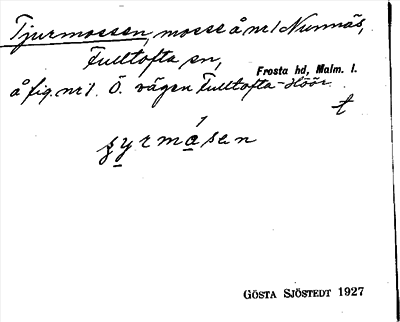 Tjurmossen, mosse å nr 1 Nunnäs,
Fulltofta sn,
Frosta hd, Malm. l.
å fig. nr 1. Ö. vägen Fulltofta-Höör
t